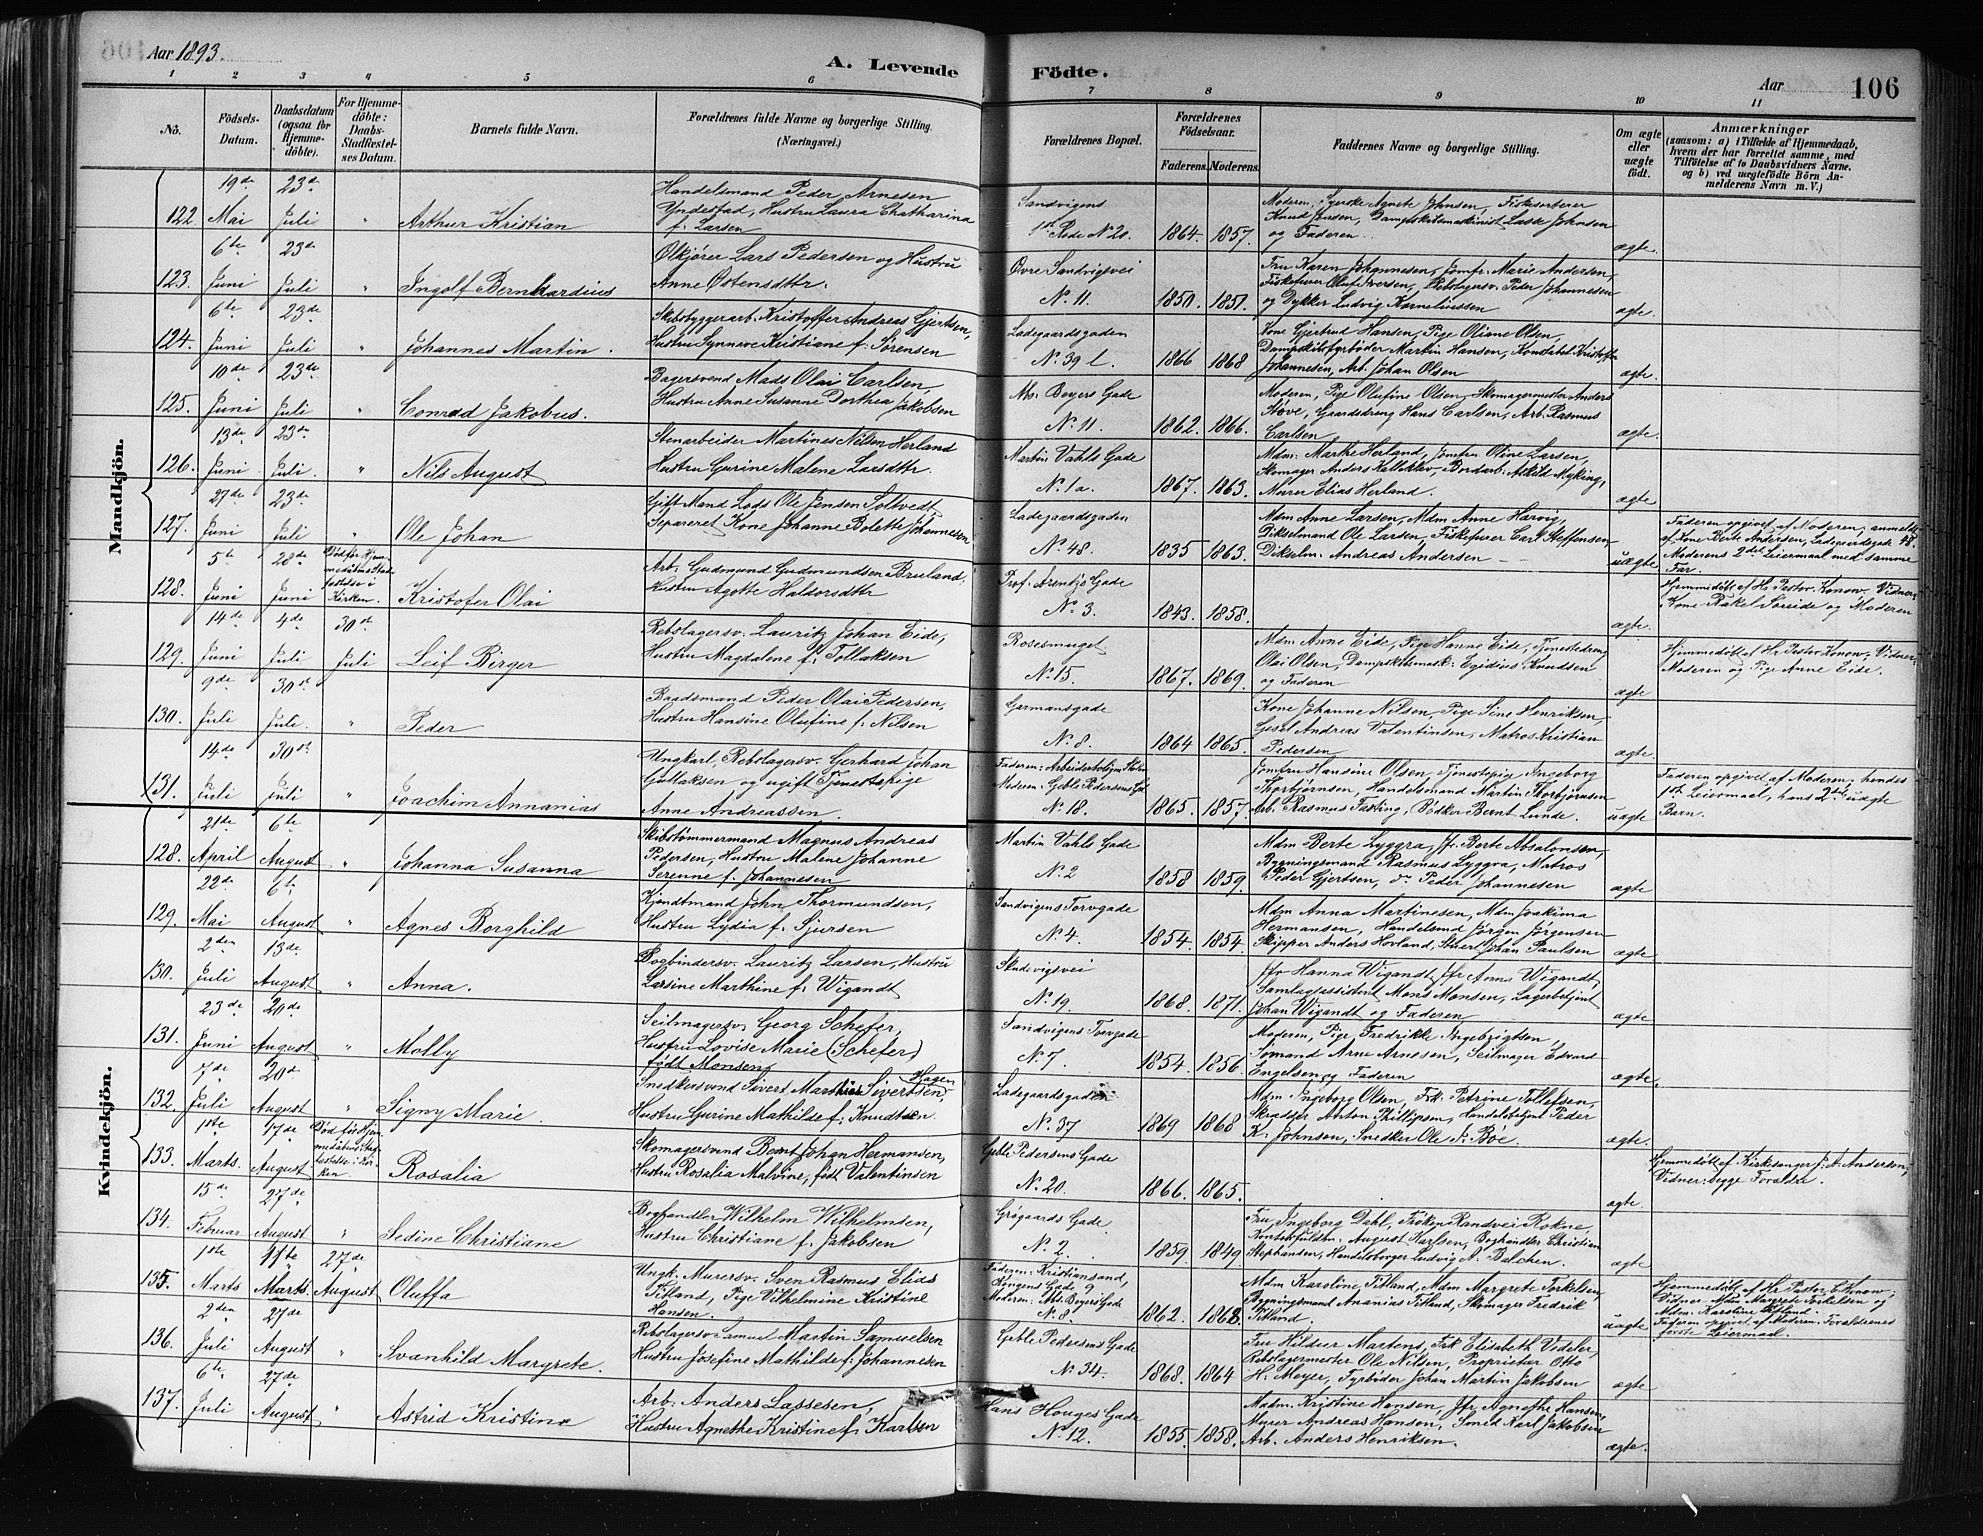 Aar 1893
A. Levende Födte.
Aar 106
1 2 3 4 5 6 7 8 9 10 11
No.
Födsels-Datum.
Daabsdatum (ogsaa for Hjemme-döbte).
For Hjemme-döbte: Daabs-Stadfæstel-ses Datum.
Barnets fulde Navn.
Forældrenes fulde Navne og borgerlige Stilling.
(Næringsvei.)
Forældrenes Bopæl.
Forældrenes Födselsaar.
Faderens. Moderens.
Faddernes Navne og borgerlige Stilling.
Om ægte eller uægte födt.
Anmærkninger
(saasom: a) i Tilfælde af Hjemmedaab, hvem der har forrettet samme, med Tilföielse af to Daabsvidners Navne, og b) ved uægtefödte Börn Anmelderens Navn m. V.)
Mandkjön.
122. 19de Mai 23de Juli " Arthur Kristian
Handelsmand Peder Arnesen
Yndestad, Hustru Laura Chatharina
f. Larsen
Sandvigens
1ste Rode No 20. 1864. 1857.
Moderen, Agnete Johnsen,
Knud Jensen, Dampskibsmaskinist Lasse Johnsen
og Faderen ægte.
123. 6te Juni 23de Juli " Ingolf Bernhardius
Ølkjører Lars Pedersen og Hustru
Anne Østensdttr.
Øvre Sandvigsvei
No. 11. 1850. 1851.
Fru Karen Johannesen, Jomfr. Marie Andersen,
Fiskefører Oluf Iversen, Rebslagersv. Peder Johannesen
og Dykker Ludvig Korneliussen ægte.
124. 6te Juni 23de Juli " Johannes Martin.
Skibsbyggerarb. Kristoffer Andreas Gjertsen,
Hustru Synneve Kristiane f. Sørensen
Ladegaardsgaden
No. 39 l. 1866 1868
Kone Gjertrud Hansen, Pige Oliane Olsen,
Dampskibsfyrbøder Martin Hansen, Konstabel Kristoffer
Johannesen, Arb. Johan Olsen ægte.
125. 10de Juni 23de Juli " Conrad Jakobus.
Bagersvend Mads Olai Carlsen,
Hustru Anne Susanne Dorthea Jakobsen
Abs. Beyers Gade
No. 11. 1862. 1866.
Moderen, Pige Olufine Olsen, Skomagermester Anders
Støve, Gaardsdreng Hans Carlsen, Arb. Rasmus
Carlsen ægte.
126. 13de Juni. 23de Juli. " Nils August
Stenarbeider Martines Nilsen Herland
Hustru Gurine Malene Larsdttr.
Martin Vahls Gade
No. 1a. 1867. 1863.
Mdm. Marthe Herland, Jomfru Oline Larsen,
Skomager Anders Kalleklev, Bordarb. Askild Myking,
Murer Elias Herland. ægte
127. 27de Juni 23de Juli " Ole Johan
Gift Mand Lods Ole Jensen Soltvedt
Separeret Kone Johanne Bolette Johannesen
Ladegaardsgaden
No. 48. 1835 1863.
Mdm Anne Larsen, Mdm Anne Harvig,
Dikselmand Ole Larsen, Fiskefører Carl Steffensen,
Dikselm. Andreas Andersen uægte
Faderen opgivet af Moderen; anmeldt
af Kone Berte Andersen, Ladegaardsgade 48.
Moderens 2det Leiermaal med samme
Far.
128. 5te Juni 28de Juni Død før Hjemmedaabens Stadfæstelse i Kirken. Kristofer Olai
Arb. Gudmund Gudmundsen Bruland,
Hustru Agotte Haldorsdttr
Prof. Arentzs Gade
No. 3. 1843. 1858. ægte.
Hjemmedøbt af Hr. Pastor Konow. Vidner:
Kone Rakel Soreide og Moderen
129. 14de Juni 4de Juli 30te Juli Leif Birger
Rebslagersv. Lauritz Johan Eide,
Hustru Magdalene f. Tollaksen
Rosesmuget
No. 15. 1867. 1869.
Mdm Anne Eide, Pige Hanne Eide, Tjenestedreng
Olai Olsen, Dampskibsmask. Egidius Knudsen
og Faderen ægte
Hjemmedøbt af Hr. Pastor Konow, Vidner:
Moderen og Pige Anne Eide.
130. 9de Juli 30te Juli. " Peder
Baadsmand Peder Olai Pedersen,
Hustru Hansine Olufine f. Nilsen
Germansgade
No. 8. 1864 1865.
Kone Johanne Nilsen, Pige Sine Henriksen,
Gesel Andreas Valentinsen, Matros Kristian
Pedersen ægte.
131. 14de Juli 30te Juli " Joachim Annanias
Ungkarl, Rebslagersv. Gerhard Johan
Gullaksen og ugift Tjenestepige
Anne Andreassen.
Faderen: Arbeiderboligen
Moderen: Geble Pedersens Gd.
No. 18. 1865. 1857.
Jomfru Hansine Olsen, Tjenestepige Ingeborg
Thorbjørnsen, Handelsmand Martin Thorbjørnsen
Arb. Rasmus Fasting, Bødker Bernt Lunde. uægte
Faderen opgivet af Moderen; hendes
1ste Leiermaal, hans 2det uægte
Barn.
Kvindekjön.
128. 21de April 6te August " Johanna Susanna
Skibstømmermand Magnus Andreas
Pedersen, Hustru Malene Johanne
Serenne f. Johannesen
Martin Vahls Gade
No. 2 1858 1859.
Mdm Berte Lyggra, Jfr. Berte Absalonsen,
Bygningsmand Rasmus Lyggra, Matros
Peder Gjertsen, do Peder Johannesen ægte
129. 22de Mai 6te August " Agnes Borghild
Kjendtmand John Thormundsen,
Hustru Lydia f. Sjursen
Sandvigens Torvgade
No. 4. 1854. 1854.
Mdm Anna Martinesen, Mdm Joakima
Hermansen, Handelsmd Jørgen Jørgensen
Skipper Anders Hovland, Stuert Johan Paulsen ægte.
130. 2den Juli 13de August " Anna.
Bogbindersv. Lauritz Larsen, Hustru
Larsine Marthine f. Wigandt
Skudevigsvei
No. 19. 1868. 1871.
Jfr Hanna Wigandt, Jfr Anna Wigandt,
Samlagsassistent Mons Monsen, Lagerbetjent
Johan Wigandt og Faderen ægte
131. 23de Juni 20de August " Molly
Seilmagersv. Georg Schefer,
Hustru Lovise Marie (Schefer)
født Monsen
Sandvigens Torvgade
No. 7. 1854. 1856.
Moderen, Pige Fredrikke Ingebrigtsen,
Sømand Arne Arnesen, Seilmager Edvard
Engelsen og Faderen ægte.
132. 7de Juli 20de August " Signy Marie.
Snedkersvend Sivert Mathias Sivertsen Hagen,
Hustru Gurine Mathilde f. Knudtsen.
Ladegaardsgaden
No. 37 1869 1868
Mdm. Ingeborg Olsen, Frk Petrine Tollefsen,
Skrædder Anton Phillipsen, Handelsbetjent Peder
K. Johnsen, Snedker Ole J. Bøe. ægte.
133. 1ste Marts. 17de August Død før Hjemmedaabens Stadfæstelse i Kirken Rosalia
Skomagersvend Bernt Johan Hermansen,
Hustru Rosalia Malvine, født Valentinsen
Geble Pedersens Gade
No. 20. 1866. 1865. ægte
Hjemmedøbt af Kirkesanger J. A. Andersen,
Vidner: begge Forældre.
134. 15de Februar 27de August " Sedine Christiane
Boghandler Wilhelm Wilhelmsen,
Hustru Christiane f. Jakobsen
Grøgaards Gade
No. 2. 1859. 1849.
Fru Ingeborg Dahl, Frøken Randvei Rokne,
Kontorfuldm. August Karlsen, Boghandler Christian
Stephansen, Handelsborger Ludvig A. Balchen. ægte
135. 1ste Marts 11te Marts. 27de August Oluffa
Ungk. Murersv. Sven Rasmus Elias
Titland, Pige Vilhelmine Kristine
Hansen.
Faderen: Kristiansand,
Kongens Gade 9
Moderen: Abs. Beyers Gade
No. 8. 1862. 1868.
Mdm Karoline Titland, Mdm Margrete Torkelsen,
Bygningsmand Ananias Titland, Skomager Fredrik
Titland. uægte
Hjemmedøbt af Hr. Pastor C. Konow;
Vidner: Mdm Margrete Torkelsen og
Mdm. Karoline Titland.
Faderen opgivet af Moderen. Forældrenes
første Leiermaal.
136. 2den Juli 27de August " Svanhild Margrete.
Rebslagersv. Samuel Martin Samuelsen
Hustru Josefine Mathilde f. Johannesen
Geble Pedersens Gade
No. 34. 1868. 1864
Fru Hildur Martens, Frk Elisabeth Vedeler,
Rebslagermester Ole Nilsen, Proprietær Otto
H. Meyer, Fyrbøder Johan Martin Jakobsen ægte
137. 6te Juli 27de August " Astrid Kristine
Arb. Anders Lassesen,
Hustru Agnethe Kristine f. Karlsen
Hans Houges Gade
No. 12. 1855. 1858.
Madm. Kristine Hansen, Jfr. Agnethe Hansen,
Murer Andreas Hansen, Smed Karl Jakobsen
Arb. Anders Henriksen. ægte.